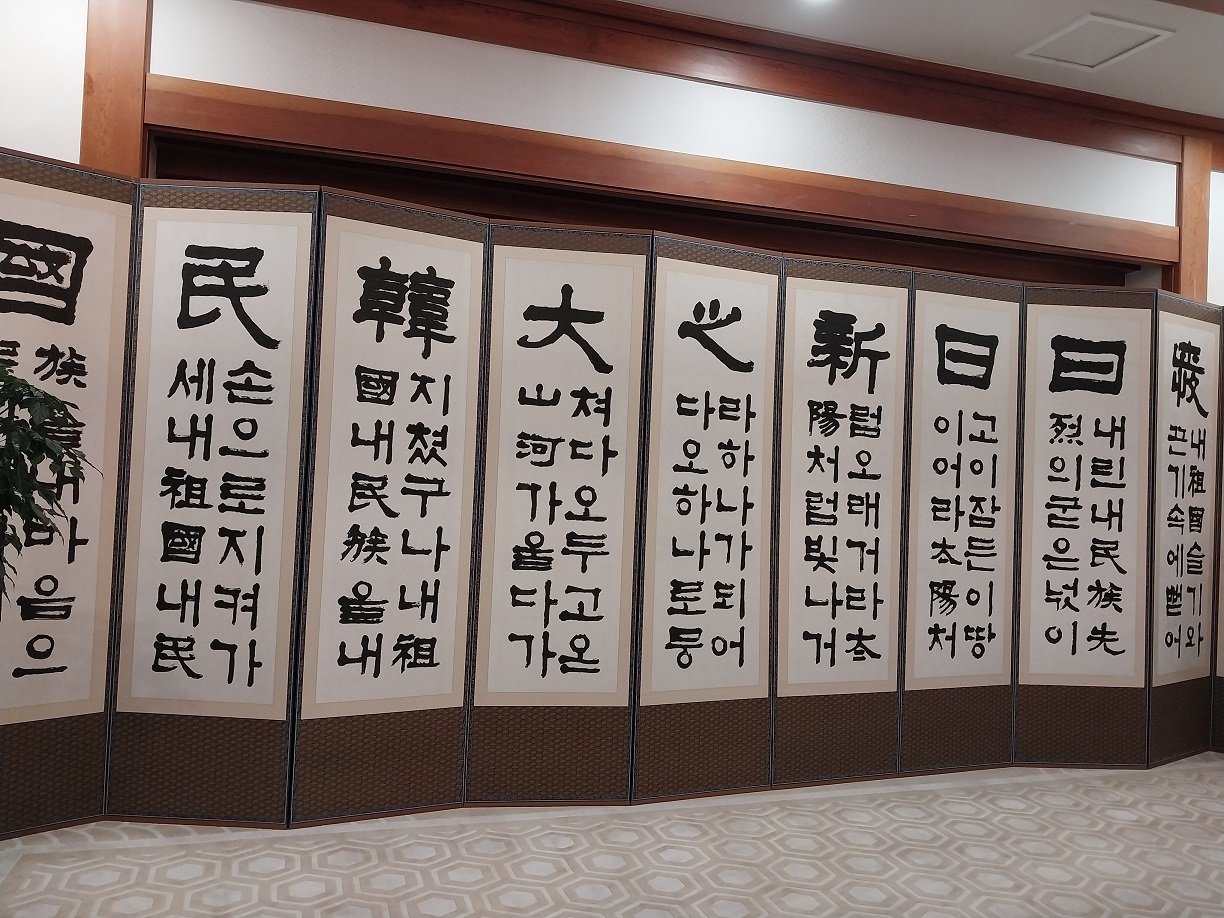 내祖國슬기와
끈기속에뻗어
曰
내린내民族先
烈의굳은넋이
日
고이잠든이땅
이어라太陽처
新
럼오래거라太
陽처럼빛나거
之
라하나가되어
다오하나토뭉
大
쳐다오두고온
山河가옴다가
韓
지쳤구나내祖
國내民族을내
民
손으로지켜가
세내祖國내民
國
族을내마음으